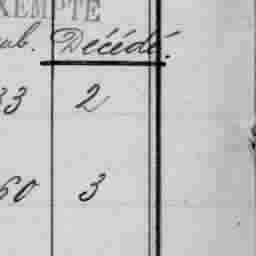 EXEMPTE
ub. Décédé.
33 2
60 3